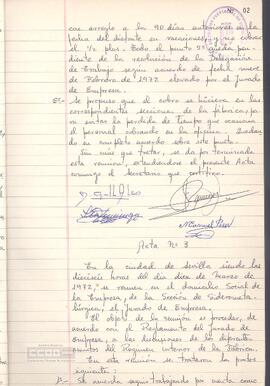 Nº 02
con arreglo a los 90 dias anteriores a la
fecha del disfrute en vacaciones, y no cobrar
el ½ plus. Todo el punto 5º queda pen-
diente de la resolución de la Delegación
de Trabajo según acuerdo de fecha nueve
de Febrero de 1972 elevado por el Jurado
de Empresa.
Se propuso que el cobro se hiciera en las
correspondientes secciones de la fábrica pa-
ra evitar la perdida de tiempo que ocasiona
el personal cobrando en la oficina.
su completo acuerdo sobre este punto.
Sin más que tratar, se da por terminada
esta reunión, extendiendose el presente Acta
conmigo el secretario que certifico.
Manuel
Acta Nº 3
En la ciudad de Sevilla siendo las
dieciseis horas del día diez de Marzo de
1972, se reunen en el domicilio Social de
la Empresa, de la Sección de Siderometa-
lúrgica, el Jurado de Empresa.
El objeto de la reunión es proceder, de
acuerdo con el Reglamento del Jurado de
Empresa, a las
del Regimen interior de la fábrica.
En esta reunión se trataron los puntos
siguientes:
Se acuerda seguir trabajando en tanto como